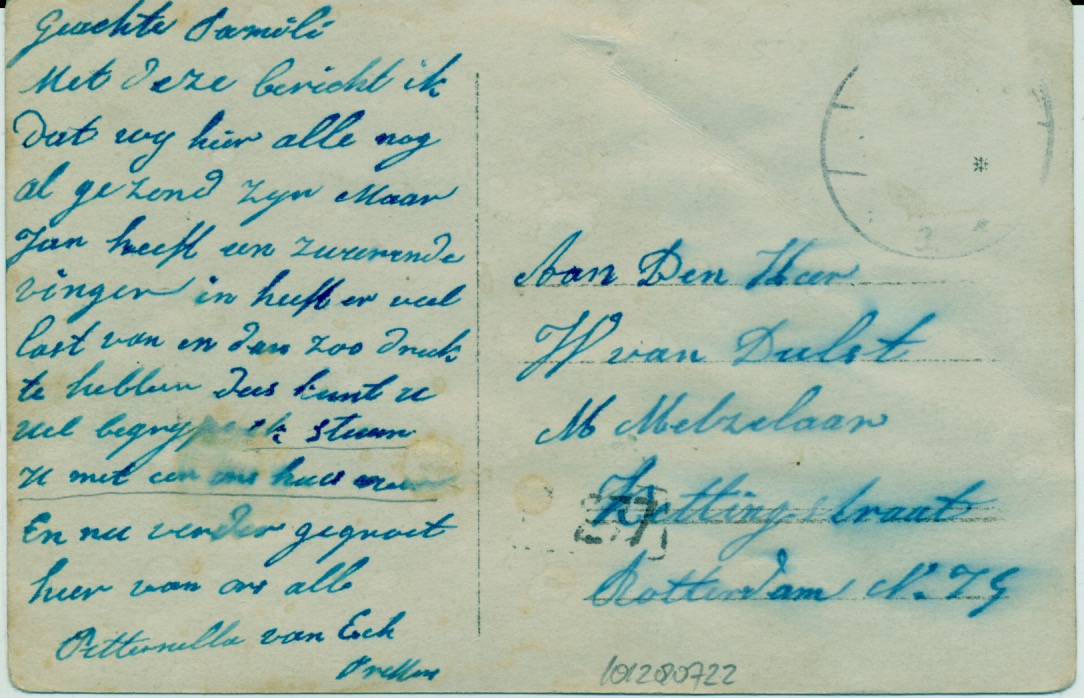 Geachte Famili
Met deze bericht ik
Dat wy hier alle nog
al gezond zyn Maar
Jan heeft een zwerende
vinger in heeft er veel
last van en dan zoo druk
te hebben dus kunt u
wel begryp ik stuur
u met een ons huis
En nu verder gegroet
hier van ons alle
Petternella van Eck
Aan Den Heer
W van Dulst
M Metzelaar
straat
Rotterdam N. 79
277
3
101280722